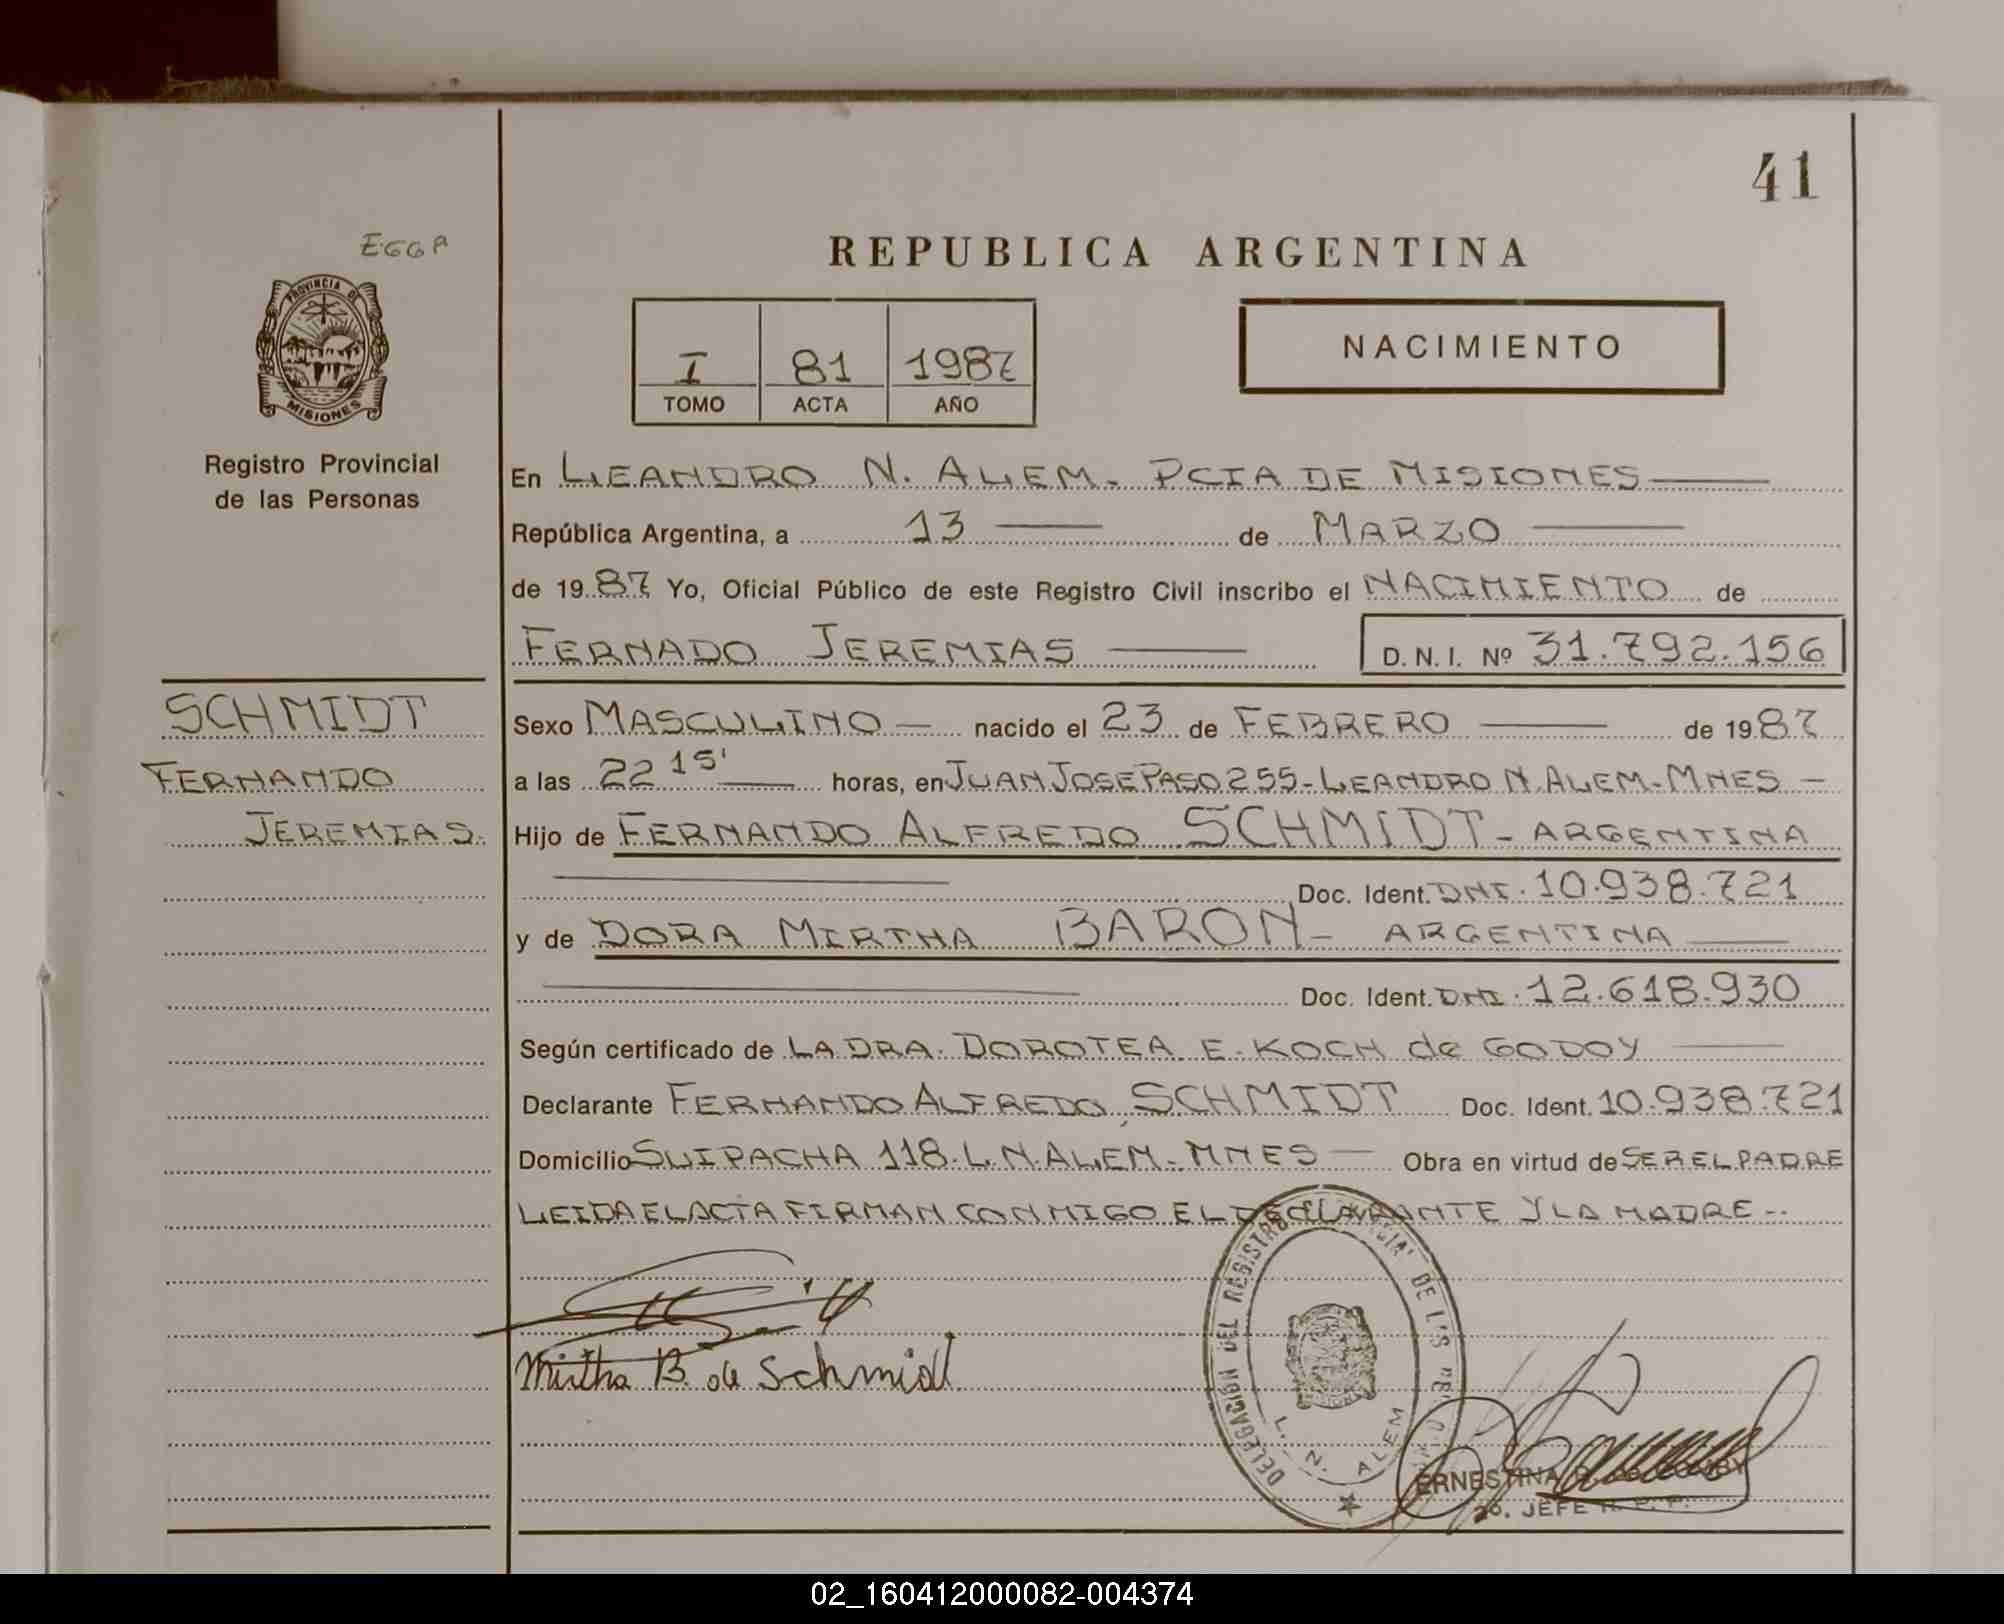 41
EGGA
REPUBLICA ARGENTINA
PROVINCIA DE
MISIONES
I 81 1987
TOMO ACTA AÑO
NACIMIENTO
Registro Provincial
de las Personas
En LEANDRO N. ALEM. PCIA DE MISIONES
República Argentina, a 13 de MARZO
de 1987 Yo, Oficial Público de este Registro Civil inscribo el NACIMIENTO de
FERNADO JEREMIAS D.N.I. Nº 31.792.156
SCHMIDT
FERNANDO
JEREMIAS.
Sexo MASCULINO nacido el 23 de FEBRERO de 1987
a las 22 15' horas, en JUAN JOSE PASO 255-LEANDRO N. ALEM-MNES -
Hijo de FERNANDO ALFREDO SCHMIDT - ARGENTINA
Doc. Ident. DNI. 10.938.721
y de DORA MIRTHA BARON - ARGENTINA
Doc. Ident. DNI. 12.618.930
Según certificado de LA DRA. DOROTEA E. KOCH de GODOY
Declarante FERNANDO ALFREDO SCHMIDT Doc. Ident. 10.938.721
Domicilio SUIPACHA 118. L.N. ALEM - MNES - Obra en virtud de SER EL PADRE
LEIDA EL ACTA FIRMAN CONMIGO EL DECLARANTE Y LA MADRE -.
Mirtha B. de Schmidt
DELEGACION DEL REGISTRO DE L'S
L. N. ALEM
ERNESTINA
2º. JEFE R. P. P.
02_160412000082-004374